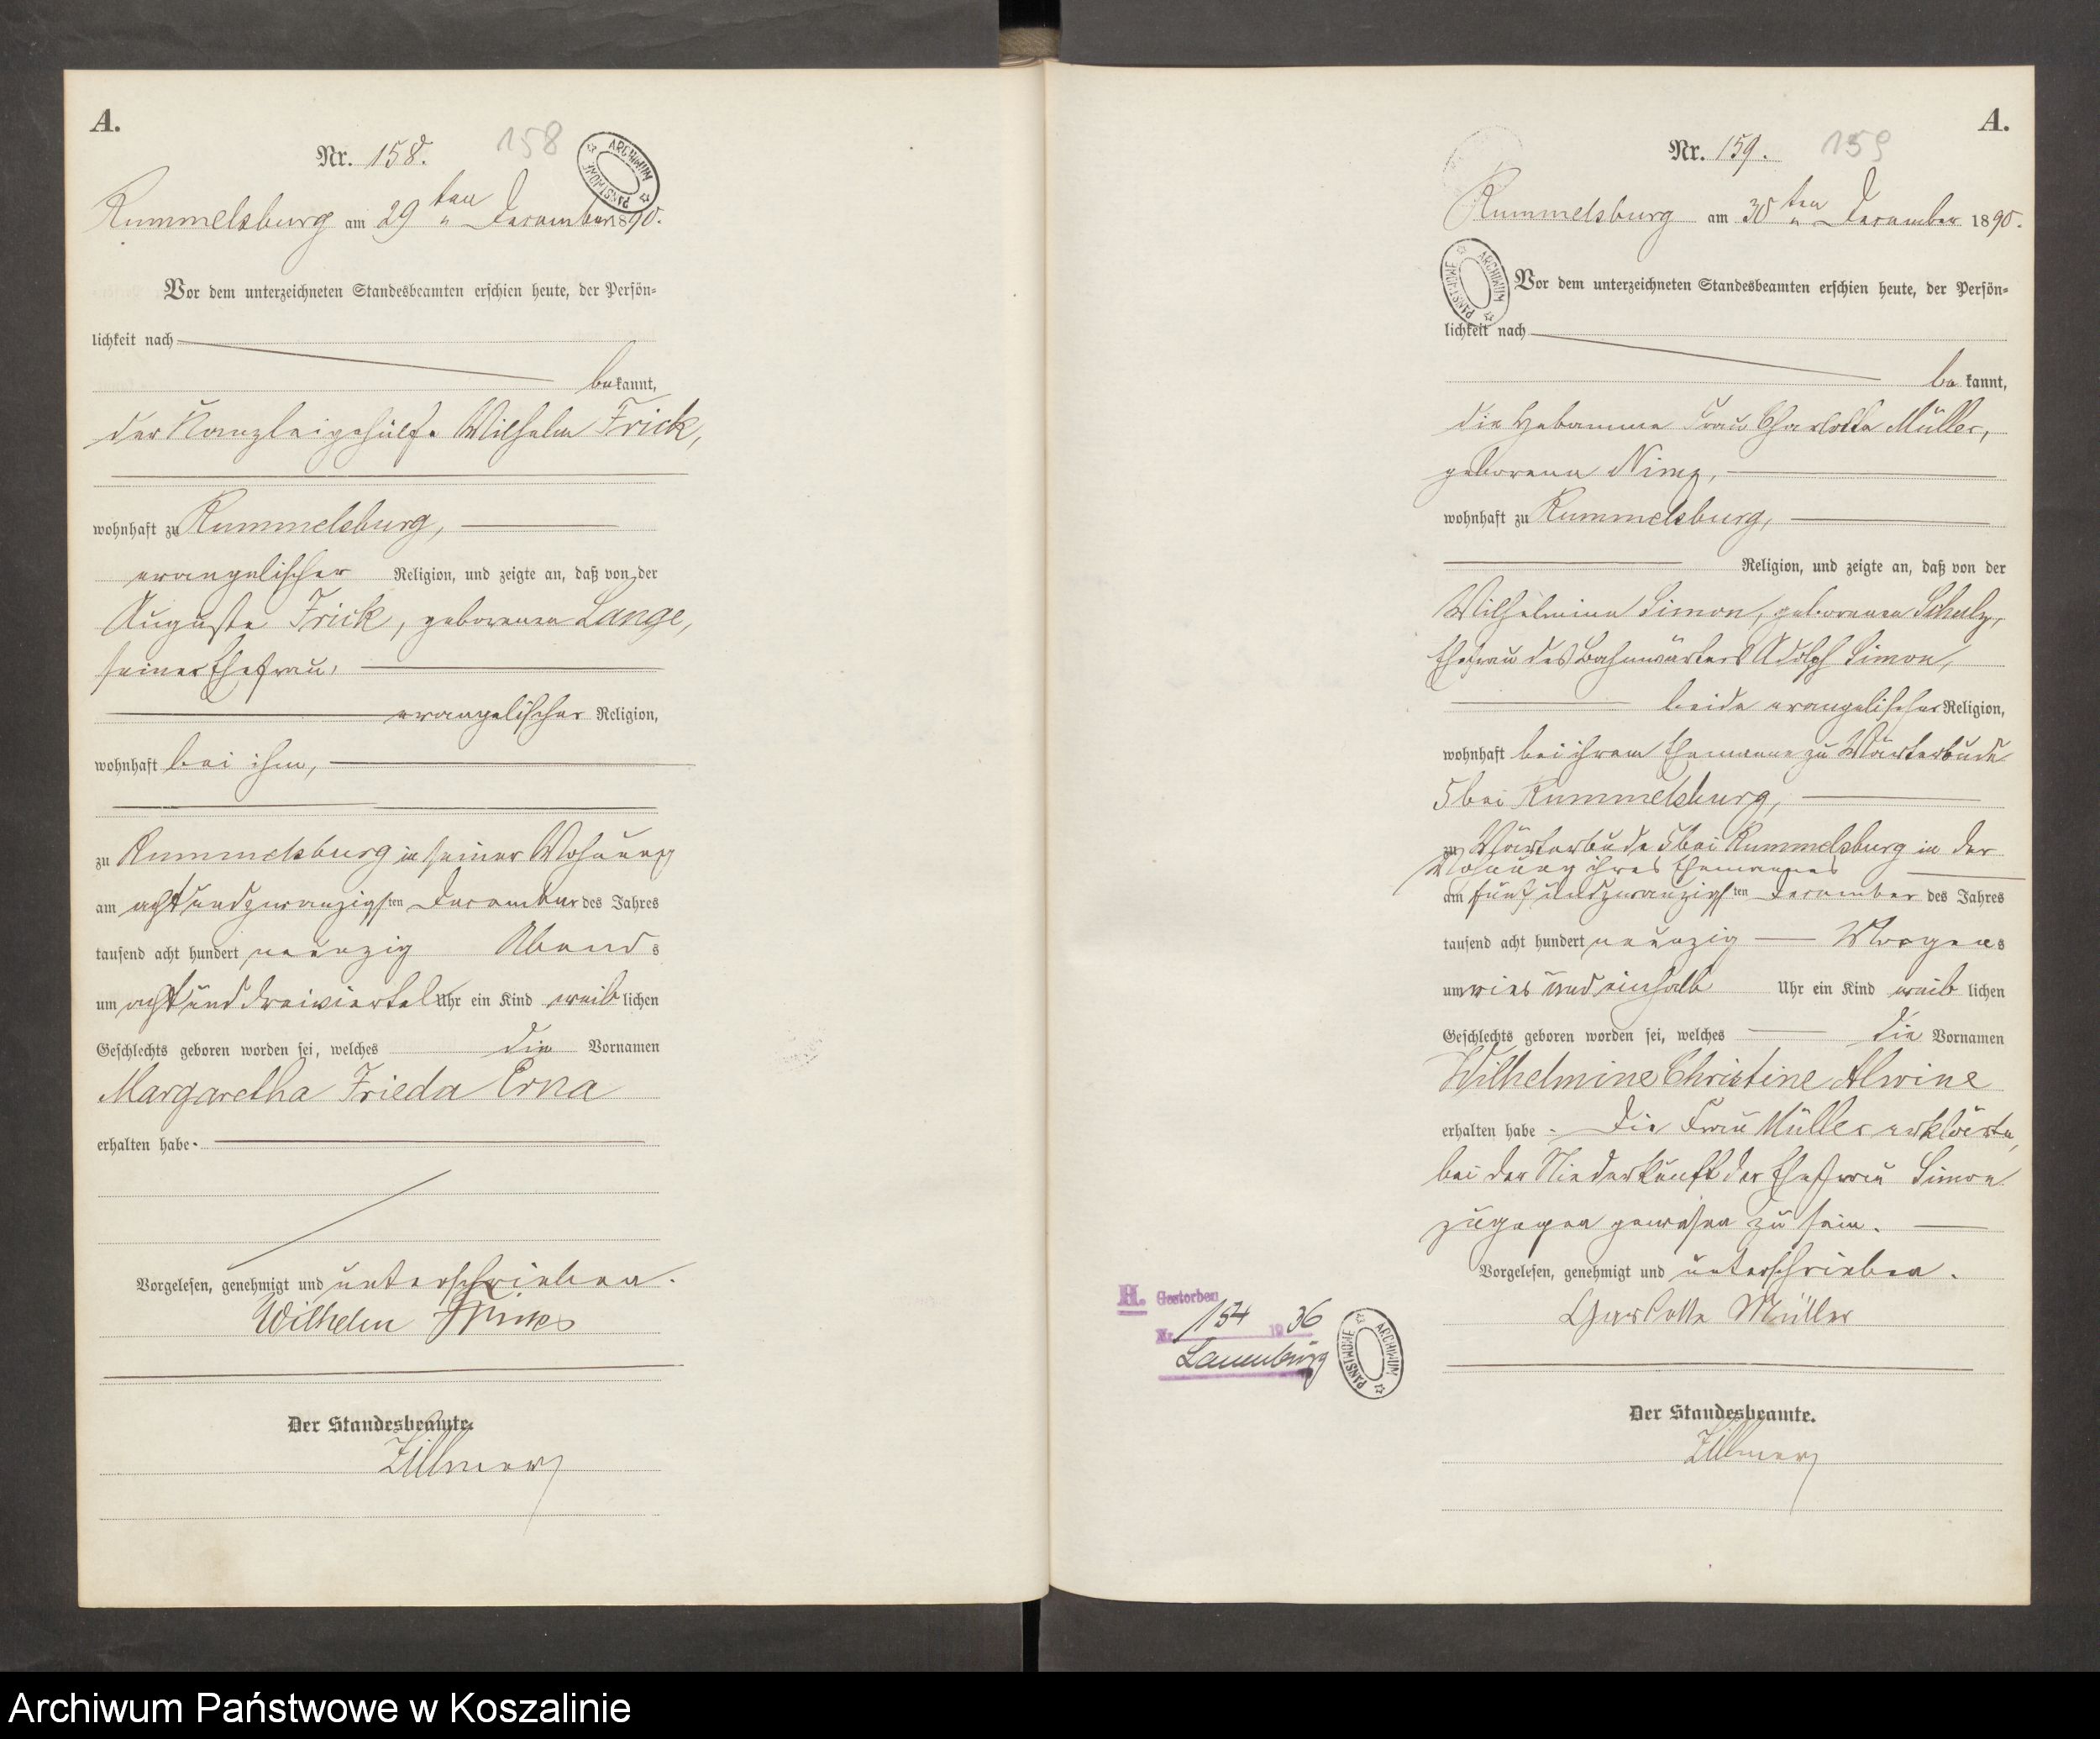 A.
Nr. 158.
158
ARCHIWUM PAŃSTWOWE
Rummelsburg am 29ten December 1890.
Vor dem unterzeichneten Standesbeamten erschien heute, der Persön-
lichkeit nach
bekannt,
der Kanzleigehülfe Wilhelm Frick,
wohnhaft zu Rummelsburg,
evangelischer Religion, und zeigte an, daß von der
Auguste Frick, geborenen Lange,
seiner Ehefrau,
evangelischer Religion,
wohnhaft bei ihm,
zu Rummelsburg in seiner Wohnung
am achtundzwanzigsten December des Jahres
tausend acht hundert neunzig Abends
um acht und dreiviertel Uhr ein Kind weiblichen
Geschlechts geboren worden sei, welches die Vornamen
Margaretha Frieda Erna
erhalten habe.
Vorgelesen, genehmigt und unterschrieben.
Wilhelm
Der Standesbeamte.
Zillmer
A.
Nr. 159.
159
Rummelsburg am 30ten December 1890.
ARCHIWUM PAŃSTWOWE
Vor dem unterzeichneten Standesbeamten erschien heute, der Persön-
lichkeit nach
bekannt,
die Hebamme Frau Charlotte Müller,
geborene Nimz,
wohnhaft zu Rummelsburg,
Religion, und zeigte an, daß von der
Wilhelmine Simon, geborenen Schulz,
Ehefrau des Bahnwärters Adolph Simon,
beide evangelischer Religion,
wohnhaft bei ihrem Ehemanne zu Wärterbude
5 bei Rummelsburg,
zu Wärterbude 5 bei Rummelsburg in der
Wohnung ihres Ehemannes
am fünfundzwanzigsten December des Jahres
tausend acht hundert neunzig Morgens
um vier und einhalb Uhr ein Kind weiblichen
Geschlechts geboren worden sei, welches die Vornamen
Wilhelmine Christine Alwine
erhalten habe. Die Frau Müller erklärte,
bei der Niederkunft der Ehefrau Simon
zugegen gewesen zu sein.
Vorgelesen, genehmigt und unterschrieben.
Charlotte Müller
H. Gestorben
Nr. 154 1936
Lauenburg
ARCHIWUM PAŃSTWOWE
Der Standesbeamte.
Zillmer
Archiwum Państwowe w Koszalinie